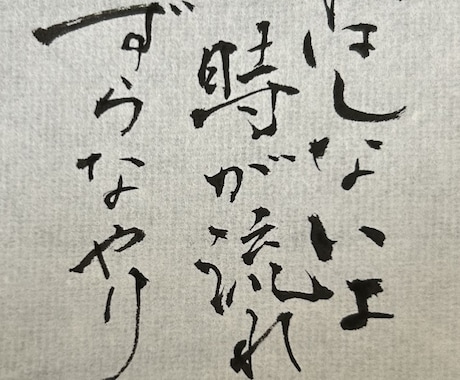 はしないよ
時が流れ
ずらなやり